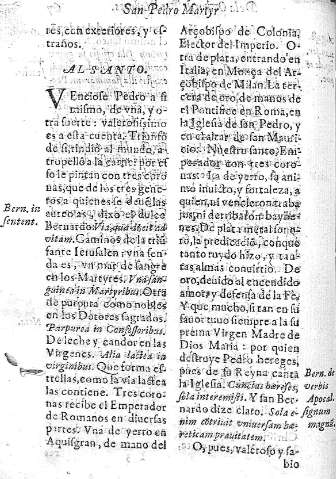 San Pedro Martyr
res, con exteriores, y es-
traños.
AL SANTO.
VEnciose Pedro a si
mismo, de vna, y o-
tra suerte: valerosissimo
es a esta cuenta, Triunfo
de si, rindiò al mundo, a-
tropellò a la carne: por esso
le pintan con tres coro-
nas, que de los tres gene-
ros a quienes se deuẽ las
aureolas, dixo el dulce
Bernardo: Via, quæ dicit ad
vitam. Caminos de la triũ
fante Ierusalen: vna sen-
da es, vn mar de sangre
en los Martyres. Vna san-
guinea in Martyribus. Otra
de purpura como nobles
en los Dotores sagrados.
Purpurea in Confessoribus.
De leche y candor en las
Virgenes. Alia lactea in
virginibus. Que forma es-
trellas, como la via lactea
las contiene. Tres coro-
nas recibe el Emperador
de Romanos en diuersas
partes. Vna de yerro en
Aquisgran, de mano del
Bern. in
sentent.
Arçobispo de Colonia,
Elector del Imperio. O-
tra de plata, entrando en
Italia, en Monça del Ar-
çobispo de Milan. La ter-
cera de oro, de manos de
el Pontifice en Roma, en
la Iglesia de san Pedro, y
en el altar de san Mauri-
cio. Nuestro santo, Em-
perador con tres coro-
nas: La de yerro, su ani-
mo inuicto, y fortaleza, a
quien, ni vencieron traba
jos, ni derribaron bayue-
nes. De plata metal sono-
ro, la predicaciõ, con que
tanto ruydo hizo, y tan-
tas almas conuirtiò. De
oro, deuido al encendido
amor, y defensa de la Fè.
Y que mucho, si tan en su
fauor tuuo siempre a la su
prema Virgen Madre de
Dios Maria: por quien
destruye Pedro hereges,
pues de su Reyna canta
la Iglesia. Cunctas hæreses,
sola interemisti. Y san Ber-
nardo dize claro. Sola e-
nim contriuit vniuersam hæ-
reticam prauitatem.
O, pues, valeroso y sa-
bio
Bern. de
verbis
Apocal.
signum
magnũ.